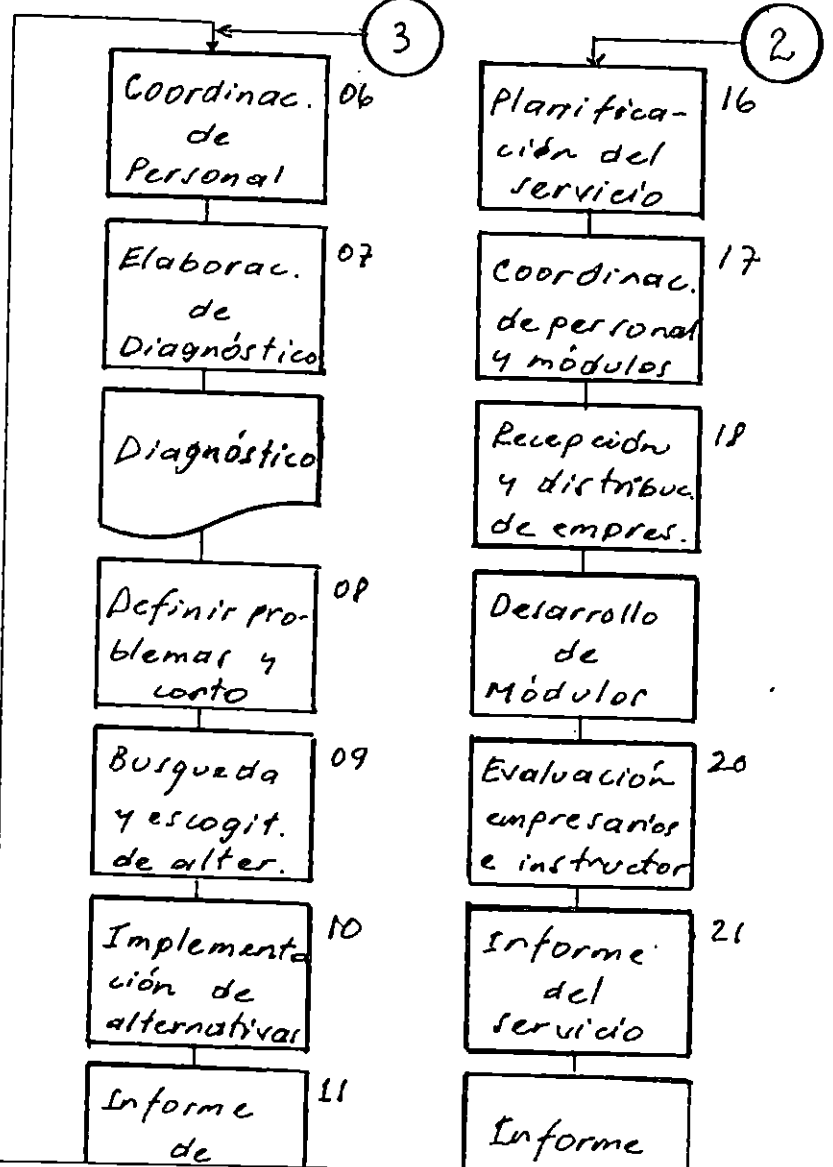 3
Coordinac.
de
Personal
06
Elaborac.
de
Diagnóstico
07
Diagnóstico
Definir pro-
blemas y
costo
08
Busqueda
y escogit.
de alter.
09
Implementa
ción de
alternativas
10
Informe
de
11
2
Planifica-
ción del
servicio
16
Coordinac.
de personal
y módulos
17
Recepción
y distribuc.
de empres.
18
Desarrollo
de
Módulos
Evaluación
empresarios
e instructor
20
Informe
del
servicio
21
Informe